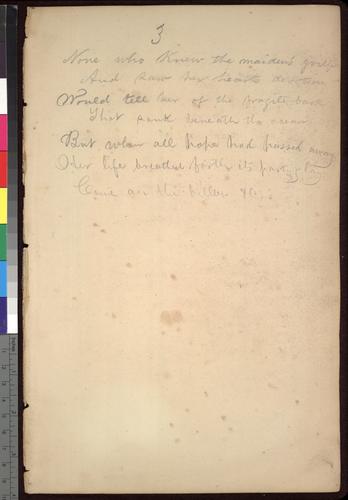 3
None who knew the maidens grief
And saw her hearts devotion
Would tell her of the fragile bark
That sank beneath the ocean
But when all hope had passed away
Her life breathed forth its parting lay
Come o'er the &c.